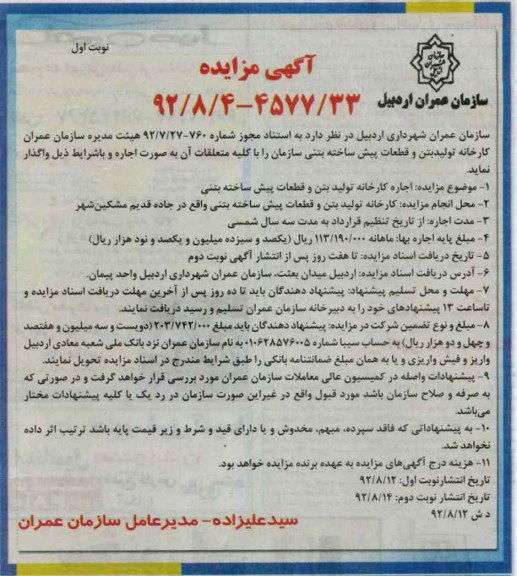 نوبت اول
آگهی مزایده
سازمان عمران اردبیل ۹۲/۸/۴-۴۵۷۷/۳۳
سازمان عمران شهرداری اردبیل در نظر دارد به استناد مجوز شماره ۷۶۰-۹۲/۷/۲۷ هیئت مدیره سازمان عمران
کارخانه تولیدبتن و قطعات پیش ساخته بتنی سازمان را با کلیه متعلقات آن به صورت اجاره و باشرایط ذیل واگذار
نماید.
۱- موضوع مزایده: اجاره کارخانه تولید بتن و قطعات پیش ساخته بتنی
۲- محل انجام مزایده: کارخانه تولید بتن و قطعات پیش ساخته بتنی واقع در جاده قدیم مشکین‌شهر
۳- مدت اجاره: از تاریخ تنظیم قرارداد به مدت سه سال شمسی
۴- مبلغ پایه اجاره بها: ماهانه ۱۱۳/۱۹۰/۰۰۰ ریال (یکصد و سیزده میلیون و یکصد و نود هزار ریال)
۵- تاریخ دریافت اسناد مزایده: تا هفت روز پس از انتشار آگهی نوبت دوم
۶- آدرس دریافت اسناد مزایده: اردبیل میدان بعثت، سازمان عمران شهرداری اردبیل واحد پیمان.
۷- مهلت و محل تسلیم پیشنهاد: پیشنهاد دهندگان باید تا ده روز پس از آخرین مهلت دریافت اسناد مزایده و
تاساعت ۱۳ پیشنهادهای خود را به دبیرخانه سازمان عمران تسلیم و رسید دریافت نمایند.
۸- مبلغ و نوع تضمین شرکت در مزایده: پیشنهاد دهندگان باید مبلغ ۲۰۳/۷۴۲/۰۰۰ (دویست و سه میلیون و هفتصد
و چهل و دو هزار ریال) به حساب سیبا شماره ۰۱۰۶۲۸۵۷۶۰۰۵ به نام سازمان عمران نزد بانک ملی شعبه معادی اردبیل
واریز و فیش واریزی و یا به همان مبلغ ضمانتنامه بانکی را طبق شرایط مندرج در اسناد مزایده تحویل نمایند.
۹- پیشنهادات واصله در کمیسیون عالی معاملات سازمان عمران مورد بررسی قرار خواهد گرفت و در صورتی که
به صرفه و صلاح سازمان باشد مورد قبول واقع در غیراین صورت سازمان در رد یک یا کلیه پیشنهادات مختار
می‌باشد.
۱۰- به پیشنهاداتی که فاقد سپرده، مبهم، مخدوش و یا دارای قید و شرط و زیر قیمت پایه باشد ترتیب اثر داده
نخواهد شد.
۱۱- هزینه درج آگهی‌های مزایده به عهده برنده مزایده خواهد بود.
تاریخ انتشارنوبت اول: ۹۲/۸/۱۲
تاریخ انتشار نوبت دوم: ۹۲/۸/۱۴
د ش ۹۲/۸/۱۲
سیدعلیزاده- مدیرعامل سازمان عمران